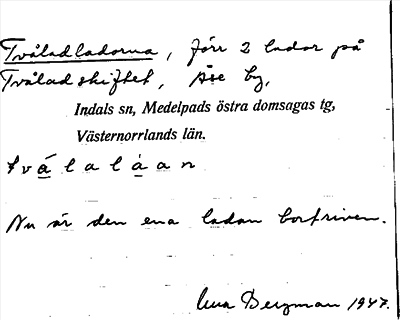 Tvåladladorna, förr 2 lador på
Tvåladskiftet, Åse by,
Indals sn, Medelpads östra domsagas tg,
Västernorrlands län.
tvålaláan
Nu är den ena ladan bortriven.
Bergman 1947.